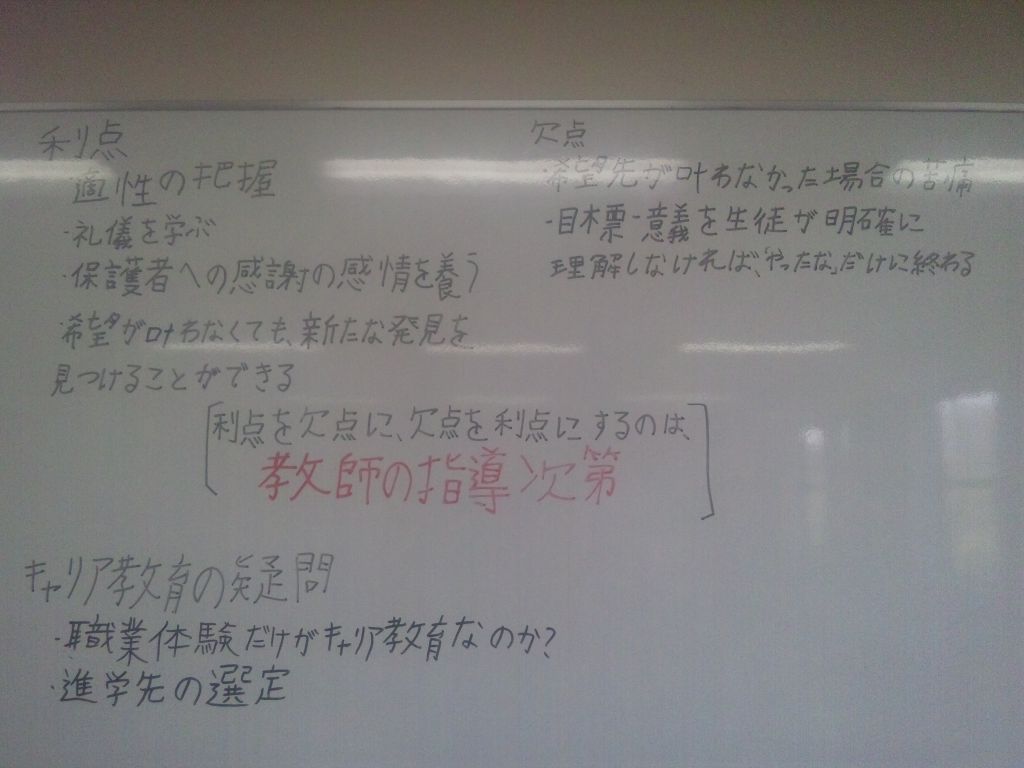 利点
適性の把握
・礼儀を学ぶ
・保護者への感謝の感情を養う
・希望が叶わなくても、新たな発見を
見つけることができる
欠点
希望先が叶わなかった場合の苦痛
・目標・意義を生徒が明確に
理解しなければ、「やったな」だけに終わる
利点を欠点に、欠点を利点にするのは、
教師の指導次第
キャリア教育の疑問
・職業体験だけがキャリア教育なのか?
・進学先の選定